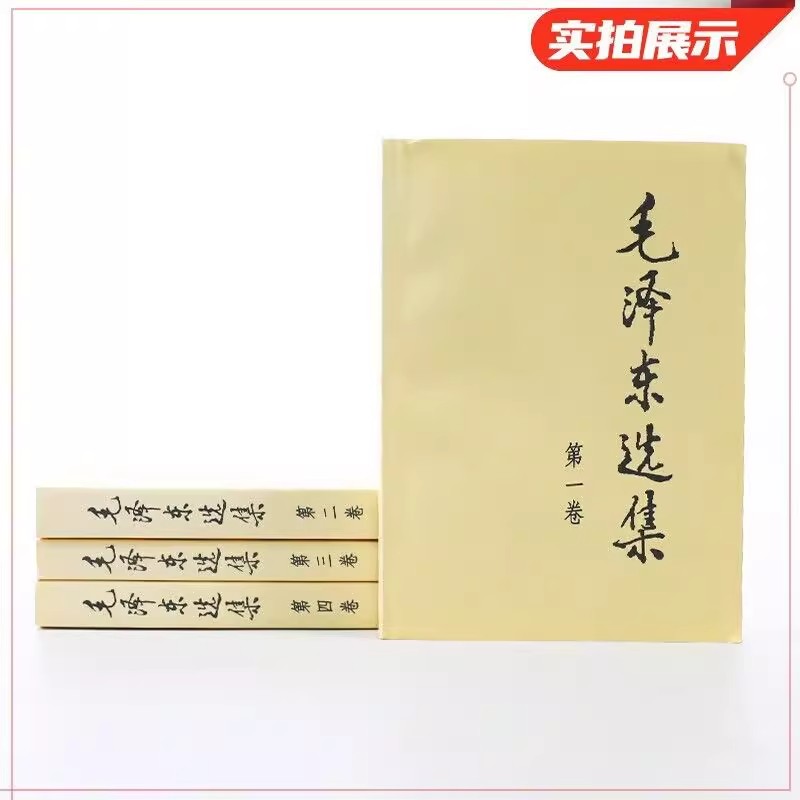 实拍展示
毛泽东选集
第一卷
毛泽东选集 第二卷
毛泽东选集 第三卷
毛泽东选集 第四卷